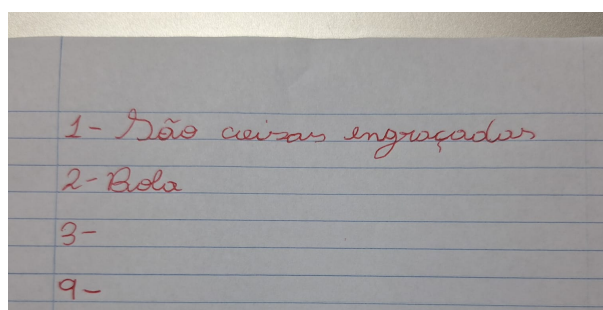 1- São coisas engraçadas
2- Bola
3-
9-